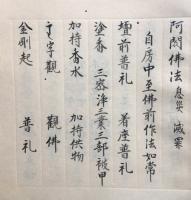 阿閦佛法 息災 滅罪
自房中至佛前作法如常
壇前普礼 着座普礼
塗香 三密浄三業三部被甲
加持香水 加持供物
字觀 觀佛
金剛起 普礼